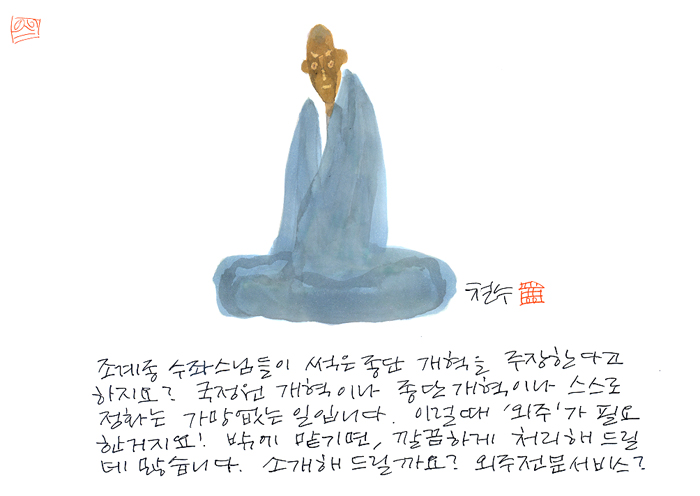 철수
조계종 수좌스님들이 썩은 종단 개혁을 주장한다고
하지요? 국정원 개혁이나 종단개혁이나 스스로
정화는 가망없는 일입니다. 이럴때 '외주'가 필요
한거지요! 밖에 맡기면, 깔끔하게 처리해 드릴
데 많습니다. 소개해 드릴까요? 외주전문서비스?